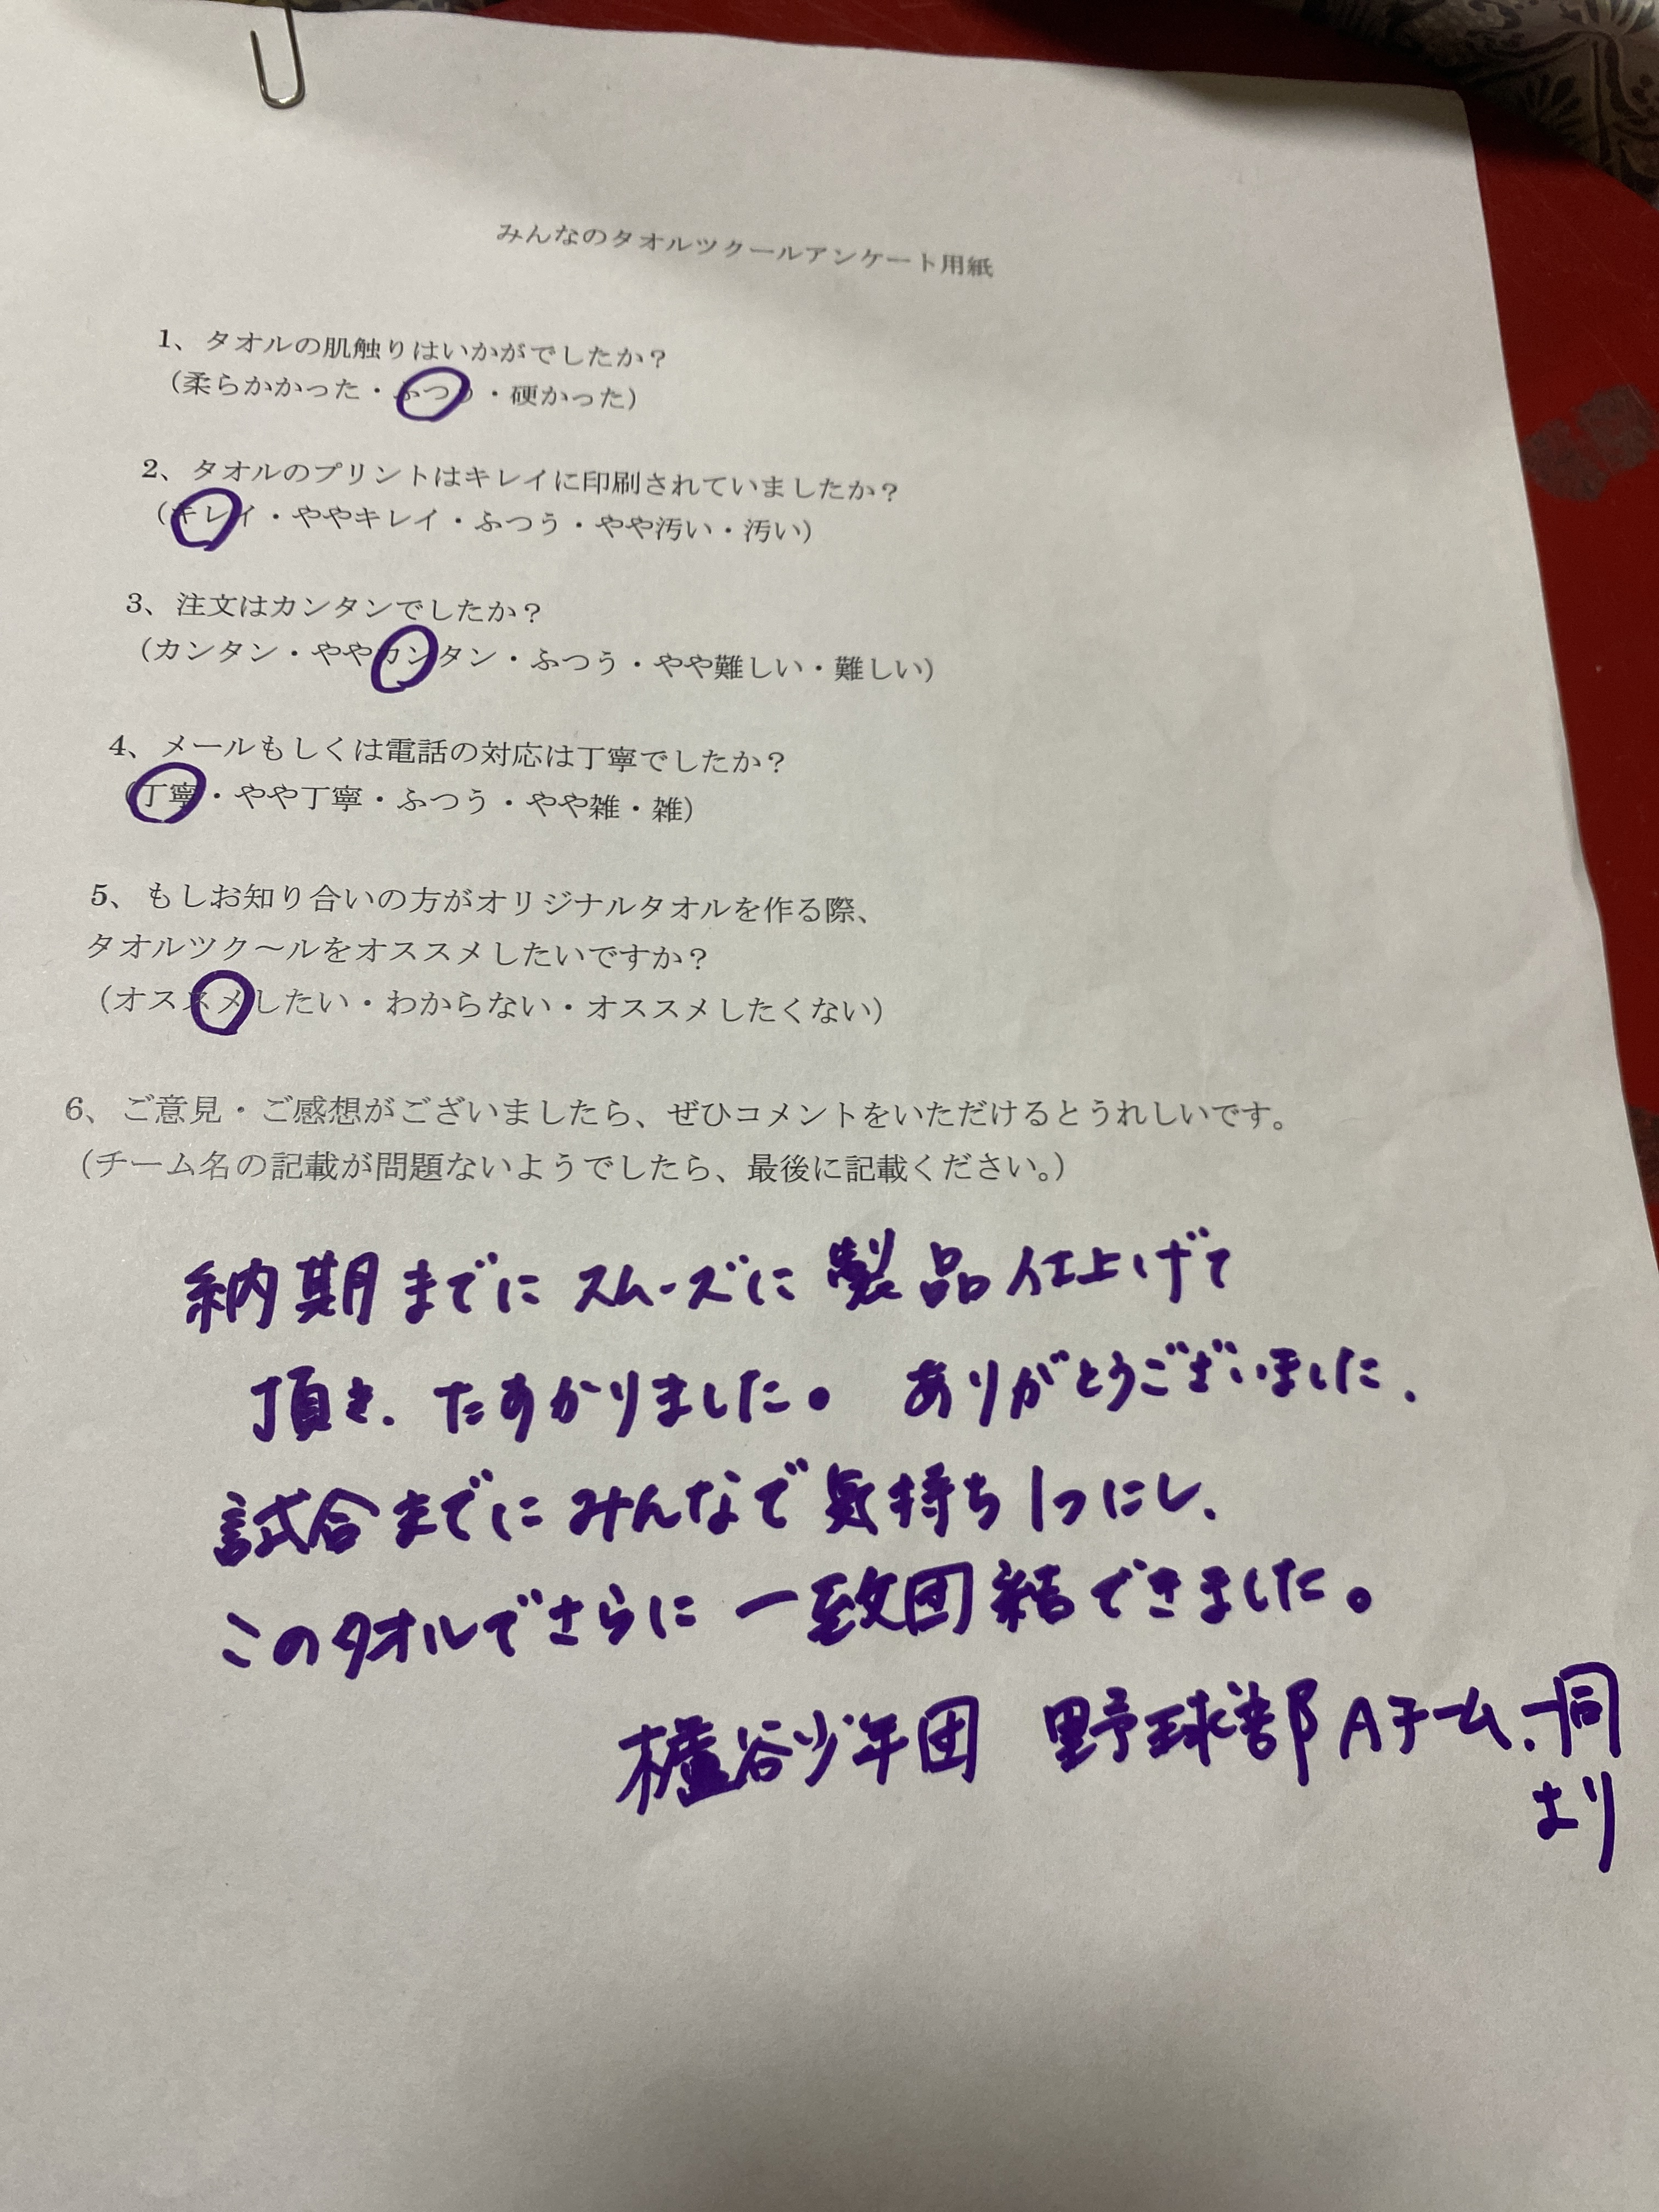 みんなのタオルツクールアンケート用紙
1、タオルの肌触りはいかがでしたか？
（柔らかかった・ふつう・硬かった）
2、タオルのプリントはキレイに印刷されていましたか？
（キレイ・ややキレイ・ふつう・やや汚い・汚い）
3、注文はカンタンでしたか？
（カンタン・ややカンタン・ふつう・やや難しい・難しい）
4、メールもしくは電話の対応は丁寧でしたか？
（丁寧・やや丁寧・ふつう・やや雑・雑）
5、もしお知り合いの方がオリジナルタオルを作る際、
タオルツク～ルをオススメしたいですか？
（オススメしたい・わからない・オススメしたくない）
6、ご意見・ご感想がございましたら、ぜひコメントをいただけるとうれしいです。
（チーム名の記載が問題ないようでしたら、最後に記載ください。）
納期までにスムーズに製品仕上げて
頂き、たすかりました。ありがとうございました、
試合までにみんなで気持ち1つにし、
このタオルでさらに一致団結できました。
櫨谷少年団 野球部Aチーム、一同
より